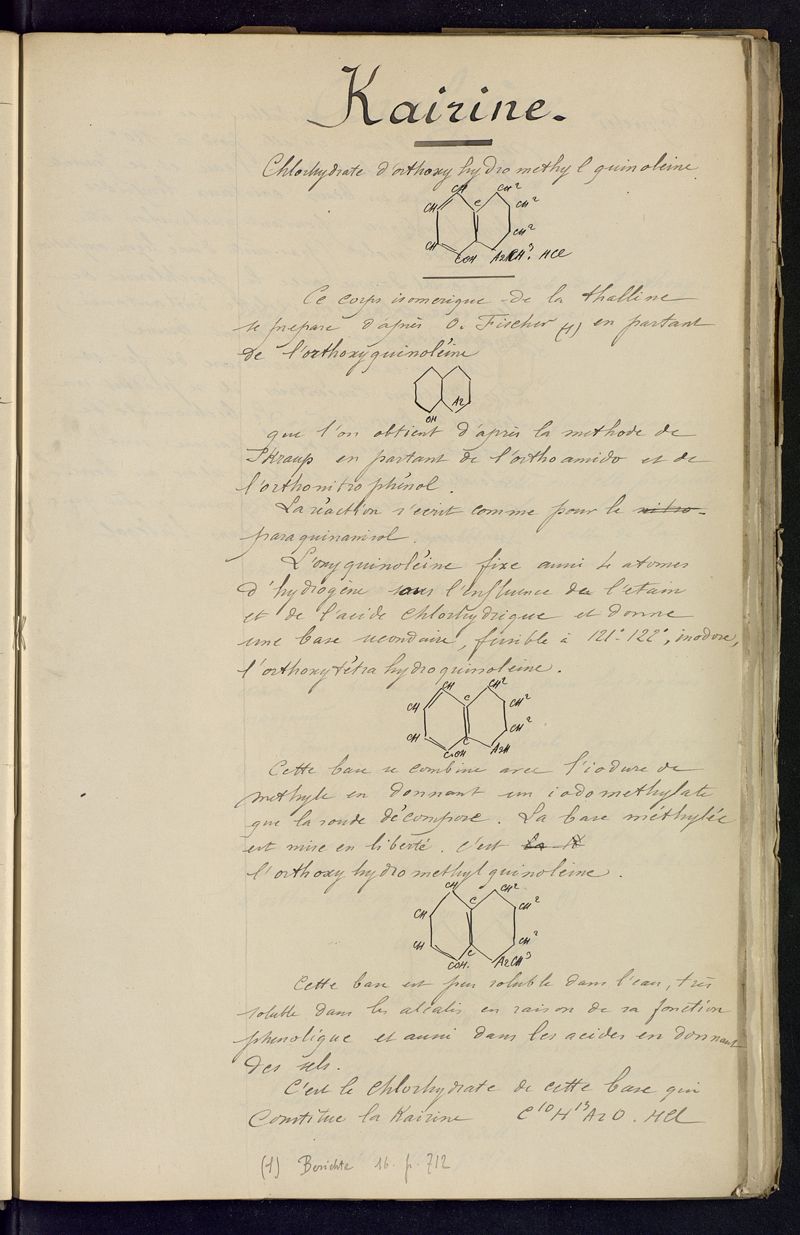 Kairine.
Chlorhydrate d'orthoxyhydromethylquinoleine
CH CH²
CH C CH²
CH²
CH
COH AzCH³. HCl
Ce corps isomerique de la thalline
se prepare d'après O. Fischer (1) en partant
de l'orthoxyquinoléine
Az
OH
que l'on obtient d'après la methode de
Skraup en partant de l'orthoamido et de
l'orthonitrophénol.
La réaction s'ecrit comme pour le nitro-
paraquinanisol.
L'oxyquinoléine fixe aussi 4 atomes
d'hydrogène sous l'influence de l'etain
et de l'acide chlorhydrique et donne
une base secondaire, fusible à 121°-122°, inodore,
l'orthoxytétrahydroquinoleine.
CH CH²
CH C CH²
CH CH²
C
COH AzH
Cette base se combine avec l'iodure de
methyle en donnant un iodomethylate
que la soude décompose. La base méthylée
est mise en liberté. c'est La
l'orthoxyhydromethylquinoleine.
CH CH²
CH C CH²
CH CH²
C
COH. AzCH³
Cette base est peu soluble dans l'eau, très
soluble dans les alcalis en raison de sa fonction
phenolique et aussi dans les acides en donnant
des sels.
C'est le chlorhydrate de cette base qui
constitue la Kairine C¹⁰H¹³AzO. HCl
(1) Berichte 16. p. 712